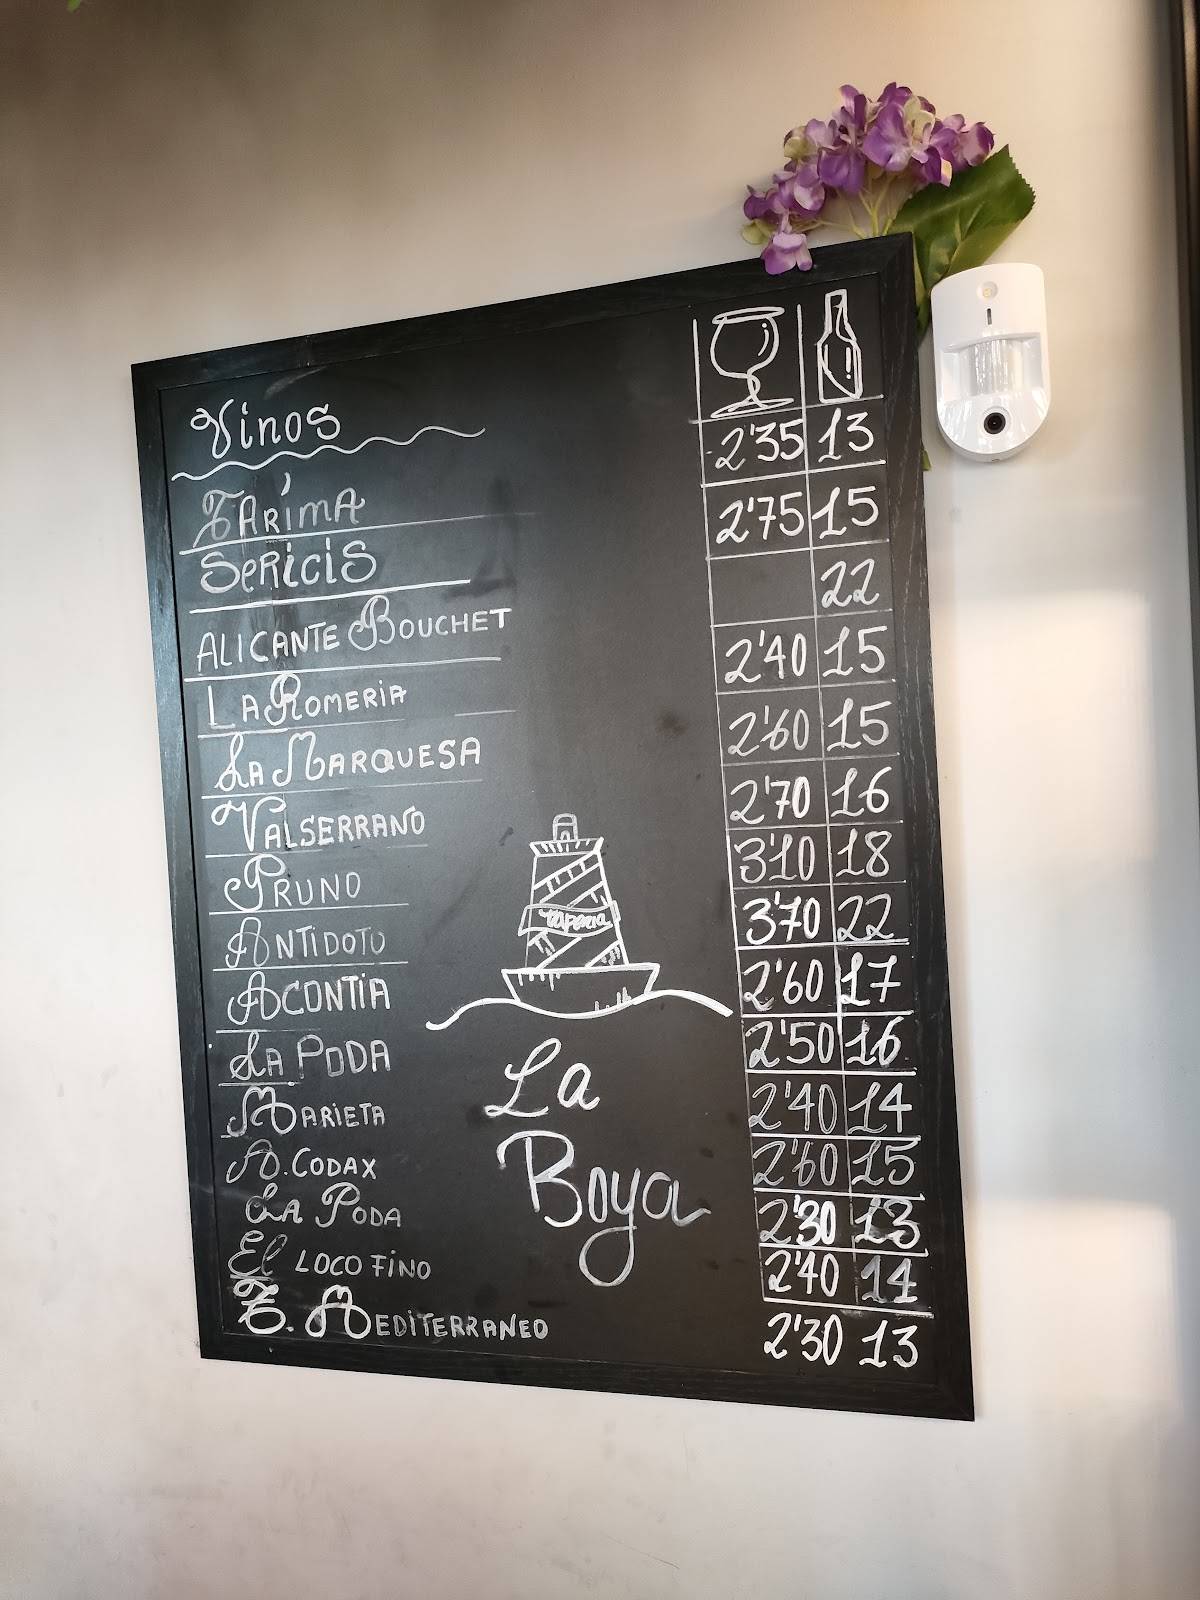 Vinos
TARÍMA 2'35 13
SERICIS 2'75 15
ALICANTE BOUCHET 22
LA ROMERIA 2'40 15
LA MARQUESA 2'60 15
VALSERRANO 2'70 16
PRUNO 3'10 18
ANTIDOTO 3'70 22
ACONTIA 2'60 17
LA PODA 2'50 16
MARIETA 2'40 14
A. CODAX 2'60 15
LA PODA 2'30 13
El LOCO FINO 2'40 14
T. MEDITERRANEO 2'30 13
taperia
La
Boya